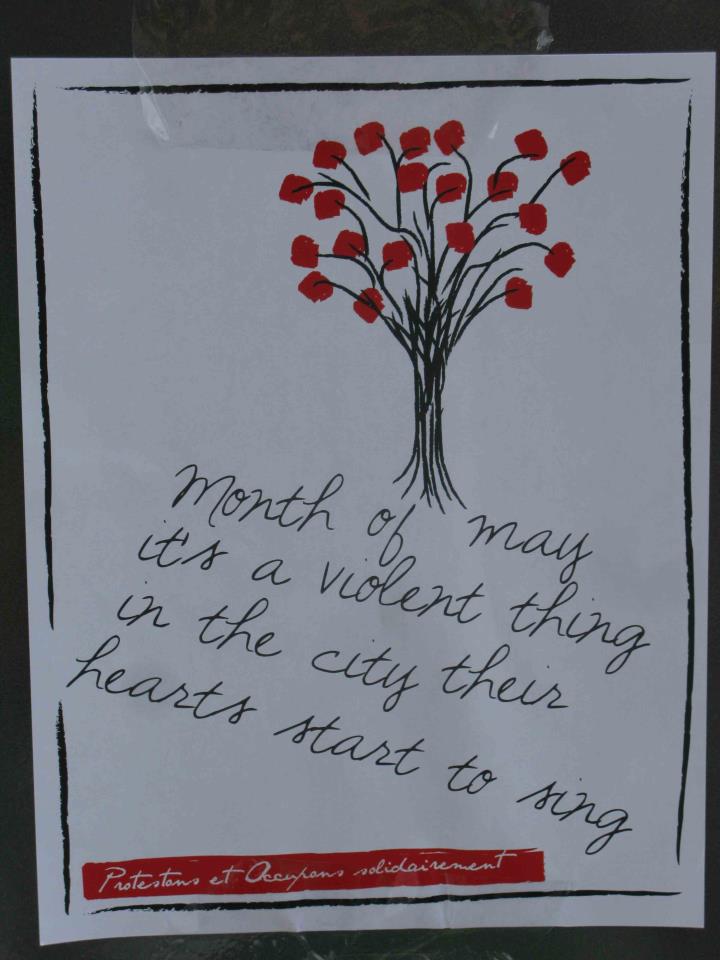 Month of may
it's a violent thing
in the city their
hearts start to sing
Protestons et Occupons solidairement